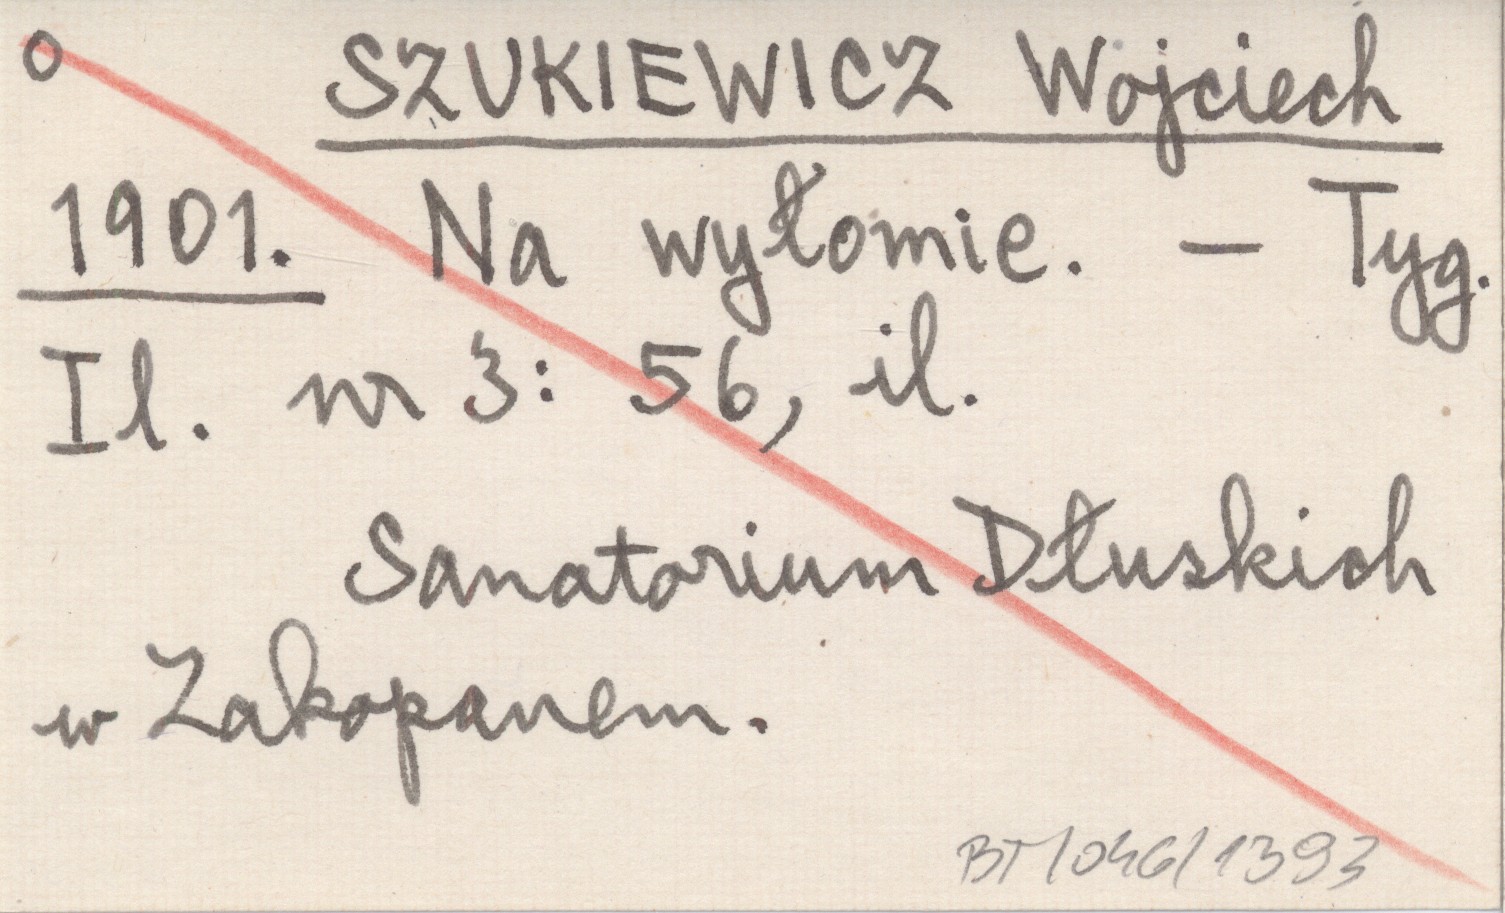 o SZUKIEWICZ Wojciech
1901. Na wyłomie. — Tyg.
Il. nr 3: 56, il.
Sanatorium Dłuskich
w Zakopanem.
BT/046/1393